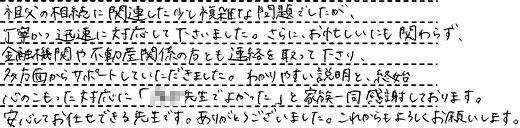 祖父の相続に関連した少し複雑な問題でしたが、
丁寧かつ迅速に対応して下さいました。さらに、お忙しいにも関わらず、
金融機関や不動産関係の方とも連絡を取って下さり、
多方面からサポートしていただきました。わかりやすい説明と、終始
心のこもった対応に「先生でよかった」と家族一同感謝しております。
安心してお任せできる先生です。ありがとうございました。これからもよろしくお願いします。